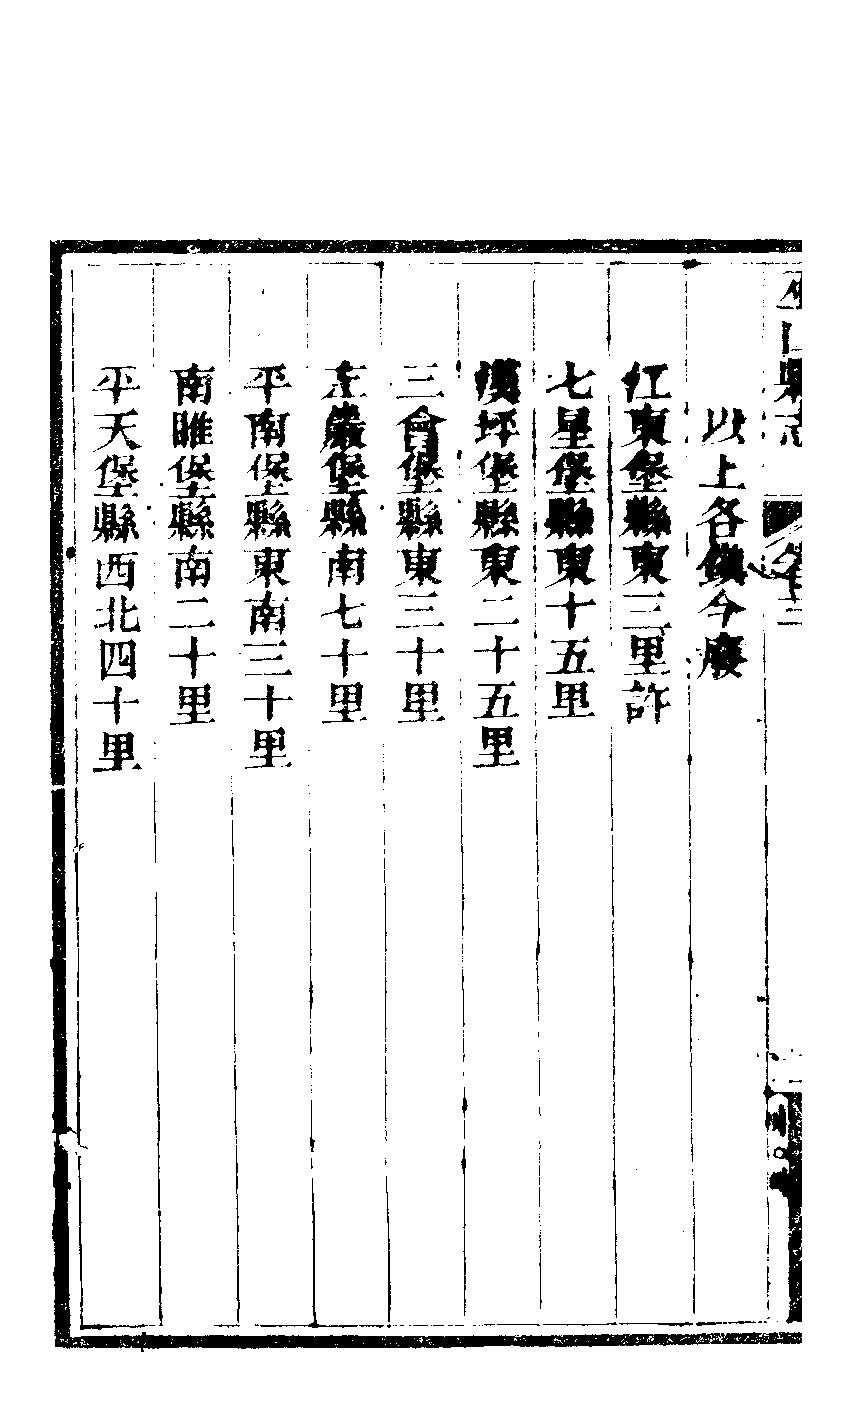 以上各鎮今廢
江東堡縣東三里許
七星堡縣東十五里
漢坪堡縣東二十五里
三會堡縣東三十里
左巖堡縣南七十里
平南堡縣東南三十里
南睢堡縣南二十里
平天堡縣西北四十里